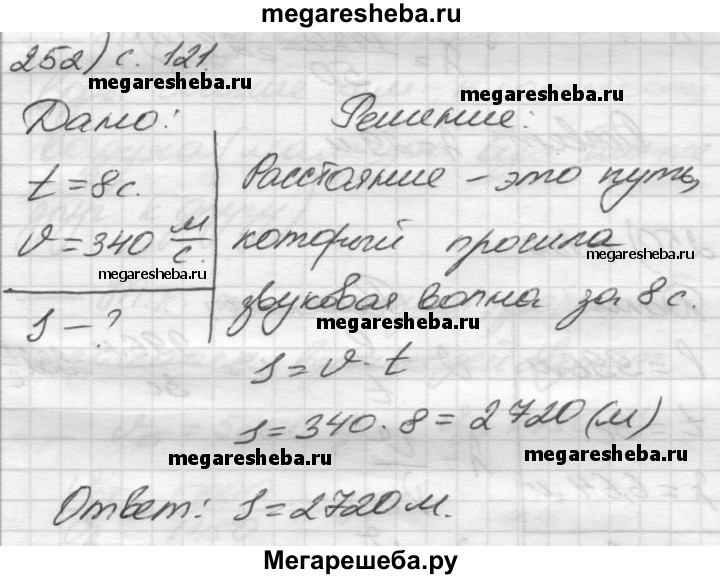 megaresheba.ru
252) с. 121.
megaresheba.ru
megaresheba.ru
Дано: Решение:
t = 8 с. Расстояние – это путь,
υ = 340 м/с. который прошла
megaresheba.ru
megaresheba.ru
S – ? звуковая волна за 8 с.
megaresheba.ru
S = υ · t
S = 340 · 8 = 2720 (м)
megaresheba.ru
megaresheba.ru
Ответ: S = 2720 м.
Мегарешеба.ру